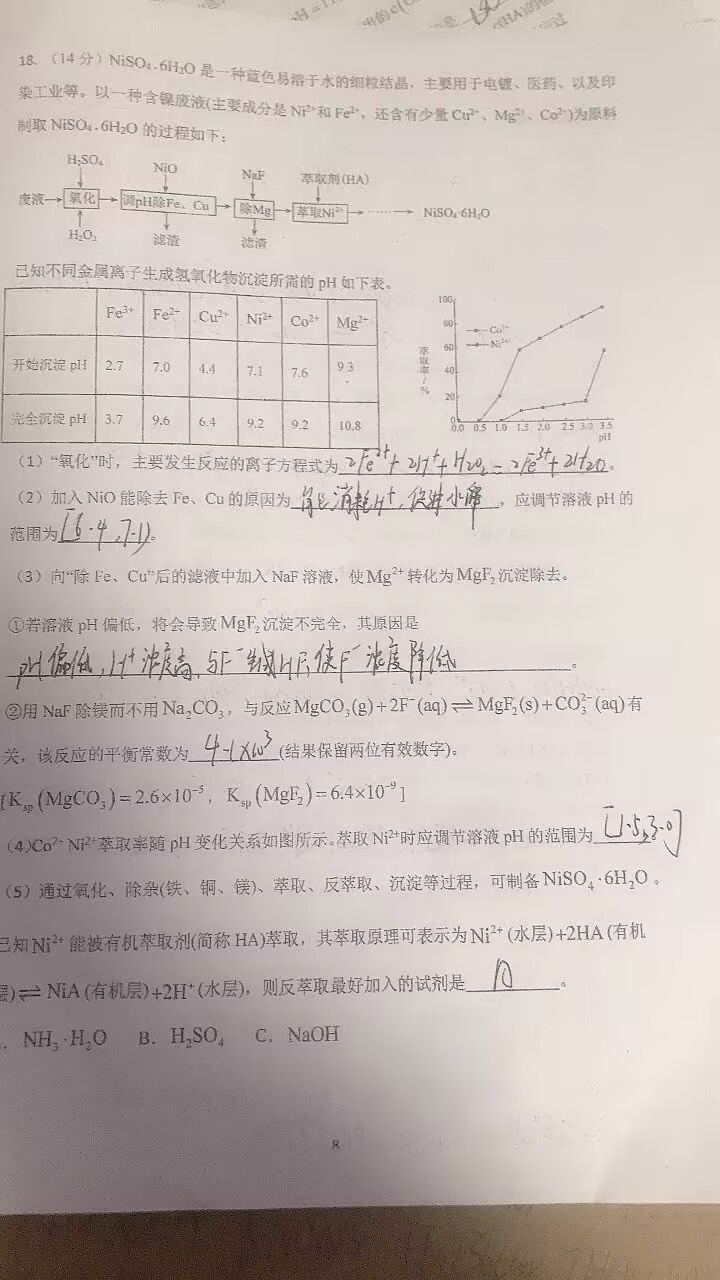 18. （14分）NiSO₄·6H₂O 是一种蓝色易溶于水的细粒结晶、主要用于电镀、医药、以及印
染工业等。以一种含镍废液(主要成分是 Ni²⁺和 Fe²⁺，还含有少量 Cu²⁺、Mg²⁺、Co²⁺)为原料
制取 NiSO₄·6H₂O 的过程如下：
H₂SO₄ NiO NaF 萃取剂(HA)
废液 氧化 调pH除Fe、Cu 除Mg 萃取Ni²⁺ …… NiSO₄·6H₂O
H₂O₂ 滤渣 滤渣
已知不同金属离子生成氢氧化物沉淀所需的 pH 如下表。
Fe³⁺ Fe²⁺ Cu²⁺ Ni²⁺ Co²⁺ Mg²⁺
开始沉淀 pH 2.7 7.0 4.4 7.1 7.6 9.3
完全沉淀 pH 3.7 9.6 6.4 9.2 9.2 10.8
萃取率/%
100
80
60
40
20
0
Co²⁺
Ni²⁺
0.0 0.5 1.0 1.5 2.0 2.5 3.0 3.5
pH
（1）“氧化”时，主要发生反应的离子方程式为 2Fe²⁺+2H⁺+H₂O₂=2Fe³⁺+2H₂O。
（2）加入 NiO 能除去 Fe、Cu 的原因为 能消耗H⁺，促进水解，应调节溶液 pH 的
范围为[6.4,7.1)。
（3）向“除 Fe、Cu”后的滤液中加入 NaF 溶液，使 Mg²⁺转化为 MgF₂ 沉淀除去。
①若溶液 pH 偏低，将会导致 MgF₂ 沉淀不完全，其原因是
pH偏低，H⁺浓度高，与F⁻生成HF，使F⁻浓度降低。
②用 NaF 除镁而不用 Na₂CO₃，与反应 MgCO₃(g)+2F⁻(aq)⇌MgF₂(s)+CO₃²⁻(aq)有
关，该反应的平衡常数为 4.1×10³ (结果保留两位有效数字)。
[Ksp(MgCO₃)=2.6×10⁻⁵，Ksp(MgF₂)=6.4×10⁻⁹]
（4）Co²⁺ Ni²⁺萃取率随 pH 变化关系如图所示。萃取 Ni²⁺时应调节溶液 pH 的范围为 [1.5,3.0]
（5）通过氧化、除杂(铁、铜、镁)、萃取、反萃取、沉淀等过程，可制备 NiSO₄·6H₂O。
已知 Ni²⁺ 能被有机萃取剂(简称 HA)萃取，其萃取原理可表示为 Ni²⁺(水层)+2HA(有机
层)⇌NiA(有机层)+2H⁺(水层)，则反萃取最好加入的试剂是 。
NH₃·H₂O B. H₂SO₄ C. NaOH
8